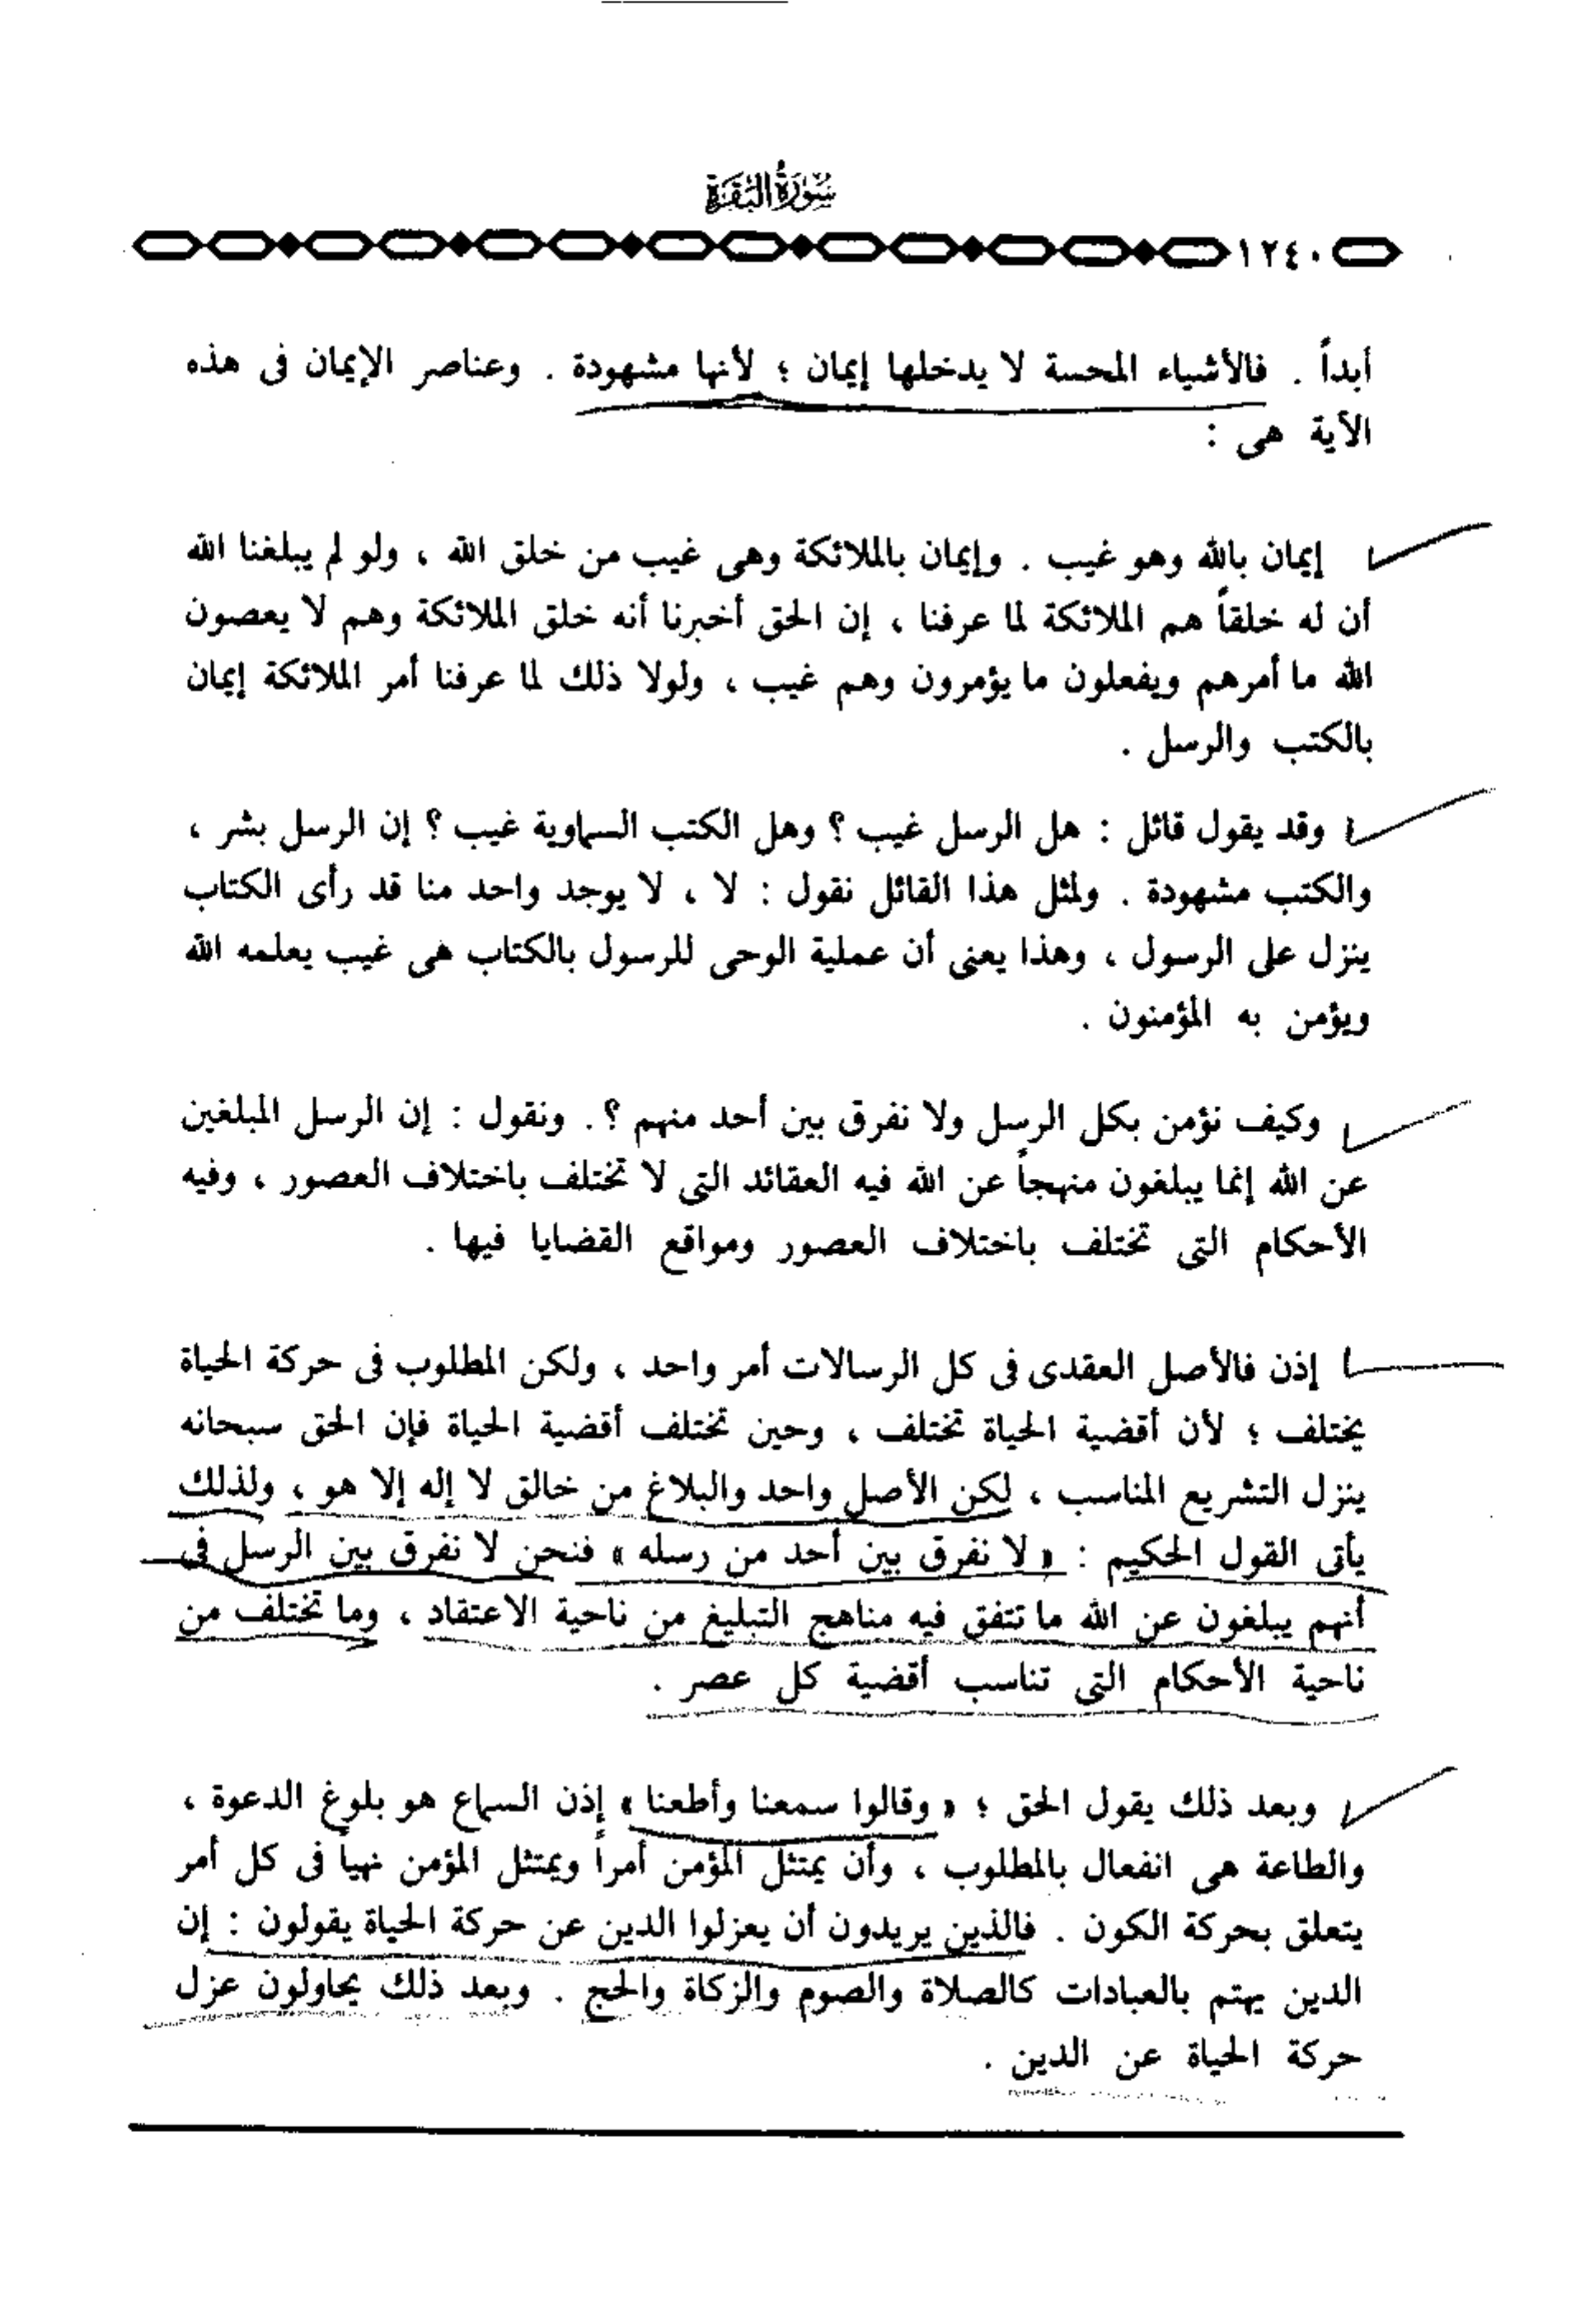 سورة البقرة
١٢٤٠
أبداً . فالأشياء المحسة لا يدخلها إيمان ؛ لأنها مشهودة . وعناصر الإيمان فى هذه
الآية هى :
إيمان بالله وهو غيب . وإيمان بالملائكة وهى غيب من خلق الله ، ولو لم يبلغنا الله
أن له خلقاً هم الملائكة لما عرفنا ، إن الحق أخبرنا أنه خلق الملائكة وهم لا يعصون
الله ما أمرهم ويفعلون ما يؤمرون وهم غيب ، ولولا ذلك لما عرفنا أمر الملائكة إيمان
بالكتب والرسل .
وقد يقول قائل : هل الرسل غيب ؟ وهل الكتب السماوية غيب ؟ إن الرسل بشر ،
والكتب مشهودة . ولمثل هذا القائل نقول : لا ، لا يوجد واحد منا قد رأى الكتاب
ينزل على الرسول ، وهذا يعنى أن عملية الوحى للرسول بالكتاب هى غيب يعلمه الله
ويؤمن به المؤمنون .
وكيف نؤمن بكل الرسل ولا نفرق بين أحد منهم ؟ . ونقول : إن الرسل المبلغين
عن الله إنما يبلغون منهجاً عن الله فيه العقائد التى لا تختلف باختلاف العصور ، وفيه
الأحكام التى تختلف باختلاف العصور ومواقع القضايا فيها .
إذن فالأصل العقدى فى كل الرسالات أمر واحد ، ولكن المطلوب فى حركة الحياة
يختلف ؛ لأن أقضية الحياة تختلف ، وحين تختلف أقضية الحياة فإن الحق سبحانه
ينزل التشريع المناسب ، لكن الأصل واحد والبلاغ من خالق لا إله إلا هو ، ولذلك
يأتى القول الحكيم : « لا نفرق بين أحد من رسله » فنحن لا نفرق بين الرسل فى
أنهم يبلغون عن الله ما تتفق فيه مناهج التبليغ من ناحية الاعتقاد ، وما تختلف من
ناحية الأحكام التى تناسب أقضية كل عصر .
وبعد ذلك يقول الحق ؛ « وقالوا سمعنا وأطعنا » إذن السماع هو بلوغ الدعوة ،
والطاعة هى انفعال بالمطلوب ، وأن يمتثل المؤمن أمراً ويمتثل المؤمن نهياً فى كل أمر
يتعلق بحركة الكون . فالذين يريدون أن يعزلوا الدين عن حركة الحياة يقولون : إن
الدين يهتم بالعبادات كالصلاة والصوم والزكاة والحج . وبعد ذلك يحاولون عزل
حركة الحياة عن الدين .